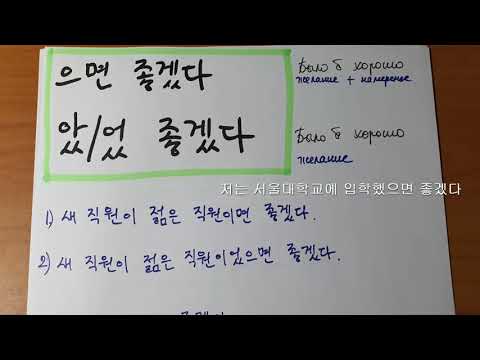 으면 좋겠다
Было б хорошо
желание + намерение
았/었 좋겠다
Было б хорошо
желание
저는 서울대학교에 입학했으면 좋겠다
1) 새 직원이 젊은 직원이면 좋겠다.
2) 새 직원이 젊은 직원이었으면 좋겠다.